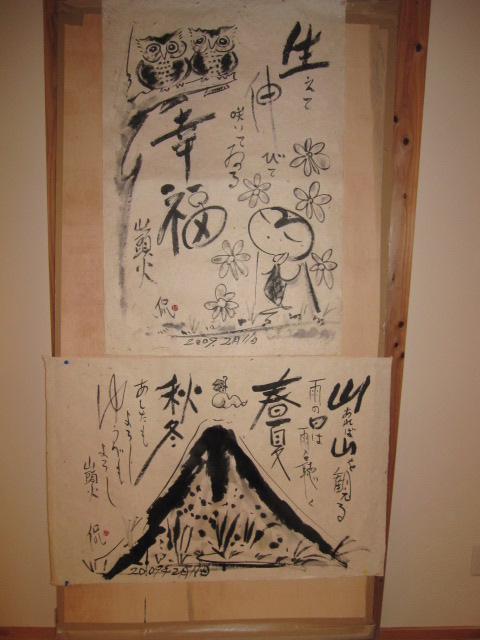 生えて
伸びて
咲いてゐる
幸福
山頭火
侃
2009.2月11日
山あれば山を観る
雨の日は
雨を聴く
春夏
秋冬
あしたもよろし
ゆふべもよろし
山頭火
侃